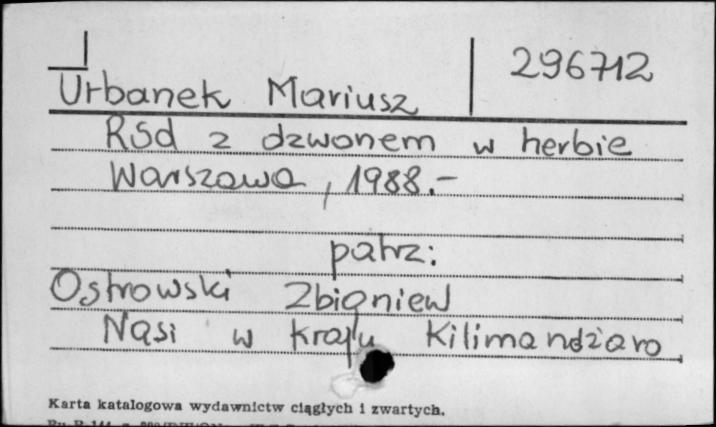 296712
Urbanek Mariusz
Ród z dzwonem w herbie
Warszawa, 1988.-
patrz:
Ostrowski Zbigniew
Nasi w kraju Kilimandżaro
Karta katalogowa wydawnictw ciągłych i zwartych.